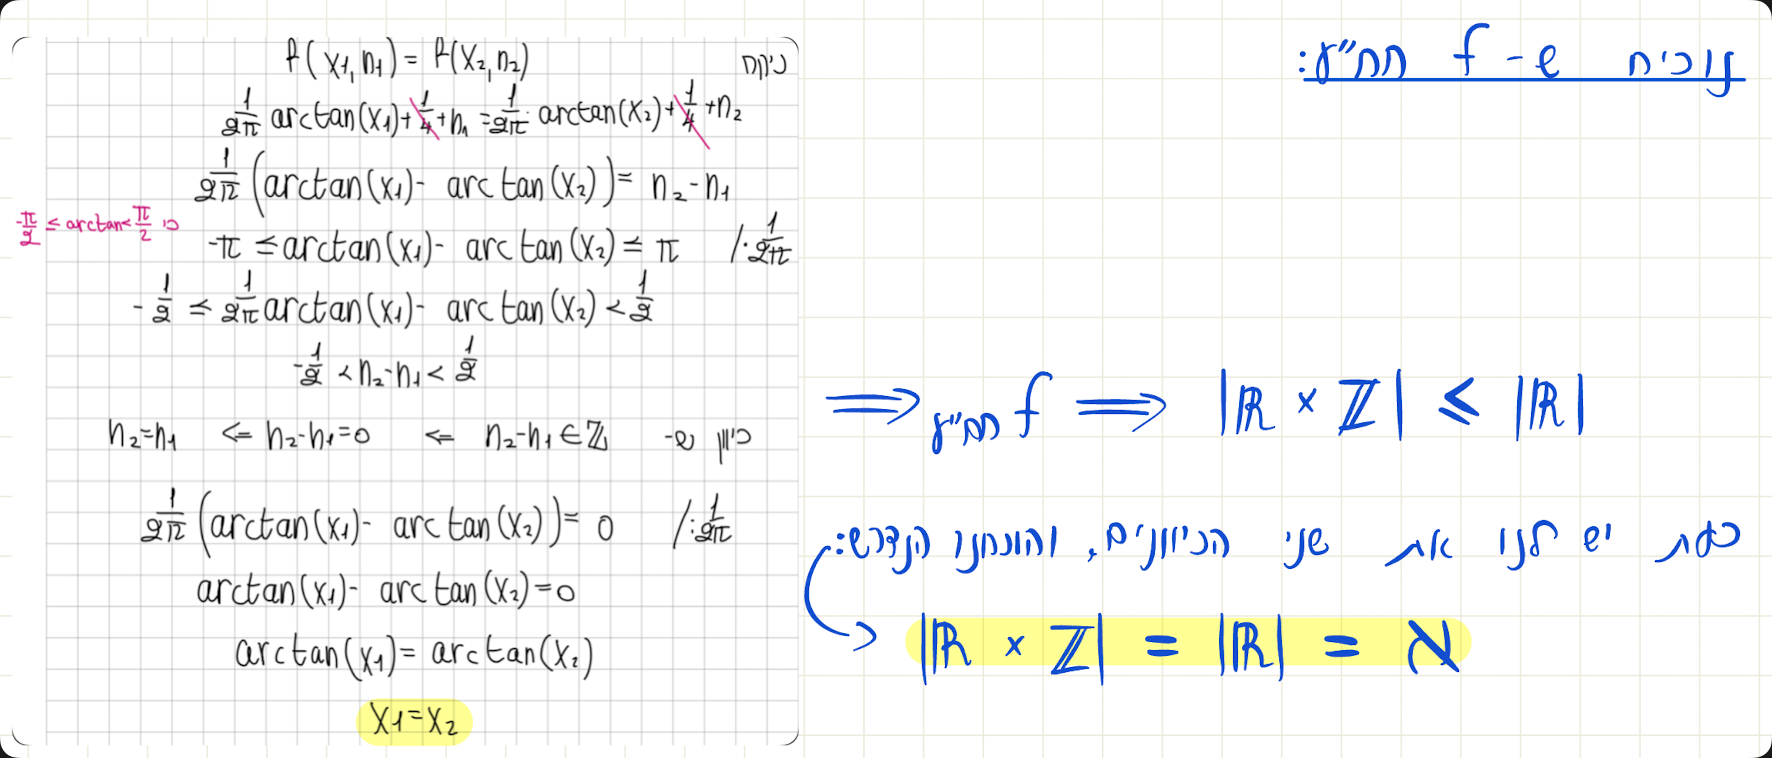 נוכיח ש- f חח"ע:
ניקח f(x₁,n₁) = f(x₂,n₂)
1/2π arctan(x₁)+1/4+n₁ = 1/2π · arctan(x₂)+1/4+n₂
1/2π (arctan(x₁)- arctan(x₂)) = n₂-n₁
כי -π/2 ≤ arctan < π/2
-π ≤ arctan(x₁)- arctan(x₂) ≤ π /·1/2π
-1/2 ≤ 1/2π arctan(x₁)- arctan(x₂) < 1/2
-1/2 < n₂-n₁ < 1/2
כיוון ש- n₂-n₁∈ℤ ⇐ n₂-n₁=0 ⇐ n₂=n₁
1/2π (arctan(x₁)- arctan(x₂)) = 0 /:1/2π
arctan(x₁)- arctan(x₂)=0
arctan(x₁)= arctan(x₂)
x₁=x₂
⟹ f חח"ע ⟹ |ℝ × ℤ| ≤ |ℝ|
כעת יש לנו את שני הכיוונים, והוכחנו הנדרש:
|ℝ × ℤ| = |ℝ| = א